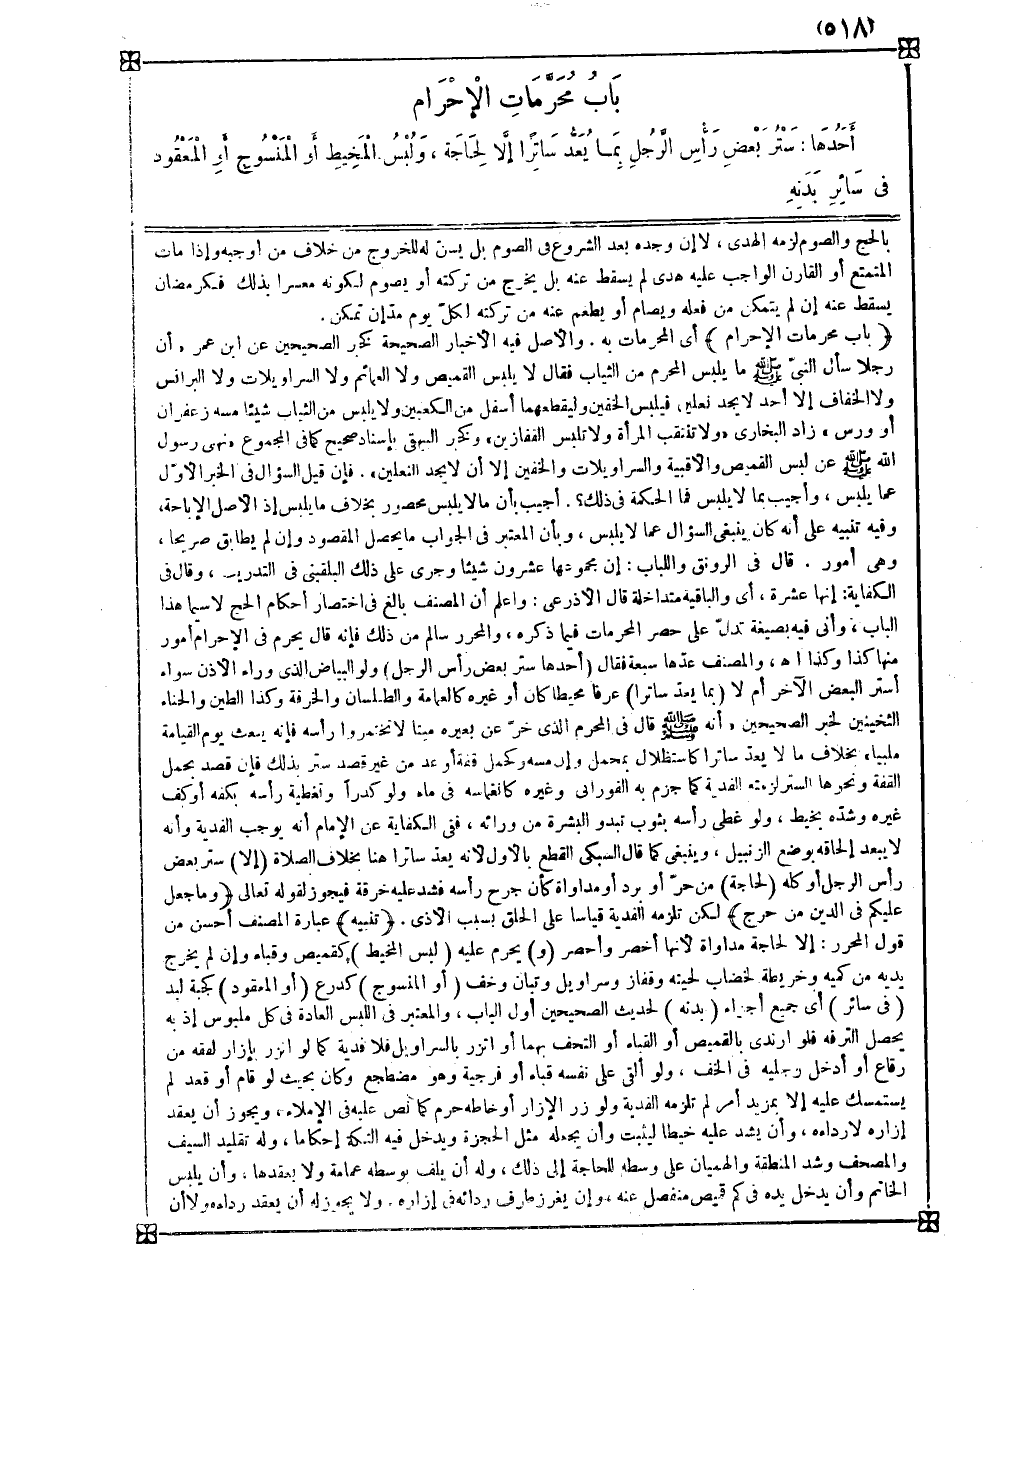 (٥١٨)
بَابُ مُحَرَّمَاتِ الْإِحْرَام
أَحَدُهَا : سَتْرُ بَعْضِ رَأْسِ الرَّجُلِ بِمَا يُعَدُّ سَاتِرًا إلَّا لِحَاجَة ، وَلُبْسُ الْمَخِيطِ أَوِ الْمَنْسُوجِ أَوِ الْمَعْقُود
فى سَائِرِ بَدَنِهِ
بالحج والصوم لزمه الهدى ، لا إن وجده بعد الشروع فى الصوم بل يسنّ له للخروج من خلاف من أوجبه وإذا مات
المتمتع أو القارن الواجب عليه هدى لم يسقط عنه بل يخرج من تركته أو يصوم لكونه معسرا بذلك فكرمضان
يسقط عنه إن لم يتمكن من فعله ويصام أو يطعم عنه من تركته لكلّ يوم مدّ إن تمكن .
﴿ باب محرمات الإحرام ﴾ أى المحرمات به . والأصل فيه الأخبار الصحيحة كخبر الصحيحين عن ابن عمر « أن
رجلا سأل النبىّ ﷺ ما يلبس المحرم من الثياب فقال لا يلبس القميص ولا العمائم ولا السراويلات ولا البرانس
ولا الخفاف إلا أحد لا يجد نعلين فيلبس الخفين وليقطعهما أسفل من الكعبين ولا يلبس من الثياب شيئا مسه زعفران
أو ورس » زاد البخارى « ولا تنتقب المرأة ولا تلبس القفازين » وكخبر البيهقى بإسناد صحيح كما فى المجموع « نهى رسول
الله ﷺ عن لبس القميص والأقبية والسراويلات والخفين إلا أن لا يجد النعلين » . فإن قيل السؤال فى الخبر الأوّل
عما يلبس ، وأجيب بما لا يلبس فما الحكمة فى ذلك؟ . أجيب بأن ما لا يلبس محصور بخلاف ما يلبس إذ الأصل الإباحة،
وفيه تنبيه على أنه كان ينبغى السؤال عما لا يلبس ، وبأن المعتبر فى الجواب ما يحصل المقصود وإن لم يطابق صريحا ،
وهى أمور . قال فى الرونق واللباب : إن مجموعها عشرون شيئا وجرى على ذلك البلقينى فى التدريب ، وقال فى
الكفاية: إنها عشرة ، أى والباقية متداخلة قال الأذرعى : واعلم أن المصنف بالغ فى اختصار أحكام الحج لاسيما هذا
الباب ، وأتى فيه بصيغة تدلّ على حصر المحرمات فيما ذكره ، والمحرر سالم من ذلك فإنه قال يحرم فى الإحرام أمور
منها كذا وكذا ا ه ، والمصنف عدّها سبعة فقال (أحدها ستر بعض رأس الرجل) ولو البياض الذى وراء الأذن سواء
أستر البعض الآخر أم لا (بما يعدّ ساترا) عرفا مخيطا كان أو غيره كالعمامة والطيلسان والخرقة وكذا الطين والحناء
الثخينين لخبر الصحيحين « أنه ﷺ قال فى المحرم الذى خرّ عن بعيره ميتا لا تخمروا رأسه فإنه يبعث يوم القيامة
ملبيا» بخلاف ما لا يعدّ ساترا كاستظلال بمحمل وإن مسه وكحمل قفة أو عد من غير قصد ستر بذلك فإن قصد بحمل
القفة ونحوها الستر لزمته الفدية كما جزم به الفورانى وغيره كانغماسه فى ماء ولو كدراً وتغطية رأسه بكفه أو كف
غيره وشدّه بخيط ، ولو غطى رأسه بثوب تبدو البشرة من ورائه ، ففى الكفاية عن الإمام أنه يوجب الفدية وأنه
لا يبعد إلحاقه بوضع الزنبيل ، وينبغى كما قال السبكى القطع بالأول لأنه يعدّ ساترا هنا بخلاف الصلاة (إلا) ستر بعض
رأس الرجل أو كله (لحاجة) من حرّ أو برد أو مداواة كأن جرح رأسه فشد عليه خرقة فيجوز لقوله تعالى ﴿ وما جعل
عليكم فى الدين من حرج ﴾ لكن تلزمه الفدية قياسا على الحلق بسبب الأذى . ﴿ تنبيه ﴾ عبارة المصنف أحسن من
قول المحرر : إلا لحاجة مداواة لأنها أخصر وأحصر (و) يحرم عليه ( لبس المخيط ) كقميص وقباء وإن لم يخرج
يديه من كميه وخريطة لخضاب لحيته وقفاز وسراويل وتبان وخف ( أو المنسوج ) كدرع ( أو المعقود ) كجبة لبد
( فى سائر ) أى جميع أجزاء ( بدنه ) لحديث الصحيحين أول الباب ، والمعتبر فى اللبس العادة فى كل ملبوس إذ به
يحصل الترفه فلو ارتدى بالقميص أو القباء أو التحف بهما أو اتزر بالسراويل فلا فدية كما لو اتزر بإزار لفقه من
رقاع أو أدخل رجليه فى الخف ، ولو ألقى على نفسه قباء أو فرجية وهو مضطجع وكان بحيث لو قام أو قعد لم
يستمسك عليه إلا بمزيد أمر لم تلزمه الفدية ولو زر الإزار أو خاطه حرم كما نص عليه فى الإملاء ، ويجوز أن يعقد
إزاره لا رداءه ، وأن يشد عليه خيطا ليثبت وأن يجعله مثل الحجزة ويدخل فيه التكة إحكاما ، وله تقليد السيف
والمصحف وشد المنطقة والهميان على وسطه للحاجة إلى ذلك ، وله أن يلف بوسطه عمامة ولا يعقدها ، وأن يلبس
الخاتم وأن يدخل يده فى كم قميص منفصل عنه ، وإن يغرز طرف ردائه فى إزاره . ولا يجوز له أن يعقد رداءه ولا أن